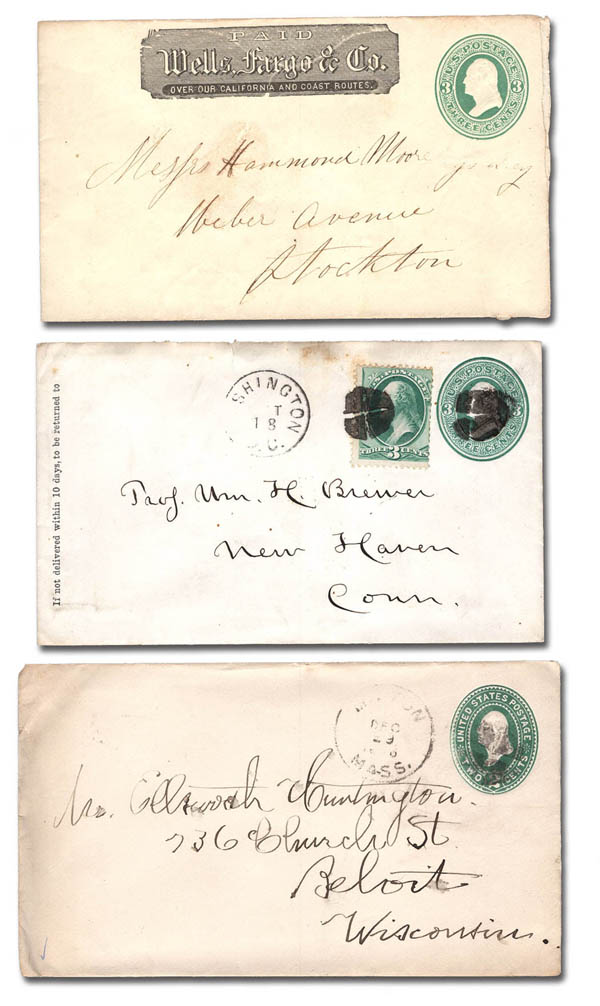 PAID
Wells, Fargo & Co.
OVER OUR CALIFORNIA AND COAST ROUTES.
U.S. POSTAGE
3 3
THREE CENTS
Messrs Hammond Moore
Weber Avenue
Stockton
If not delivered within 10 days, to be returned to
SHINGTON
T
18
D.C.
U.S. POSTAGE
THREE 3 CENTS
U.S. POSTAGE
3
THREE CENTS
Prof. Wm. H. Brewer
New Haven
Conn.
DEC
29
MASS.
UNITED STATES POSTAGE
TWO 2 CENTS
Mr. Ellsworth Huntington.
736 Church St.
Beloit
Wisconsin.